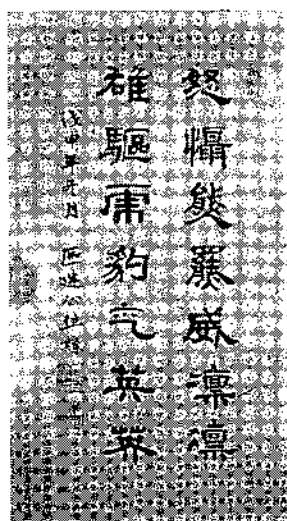 怒懾熊羆威凜凜
雄驅虎豹气英英
戊申年元月